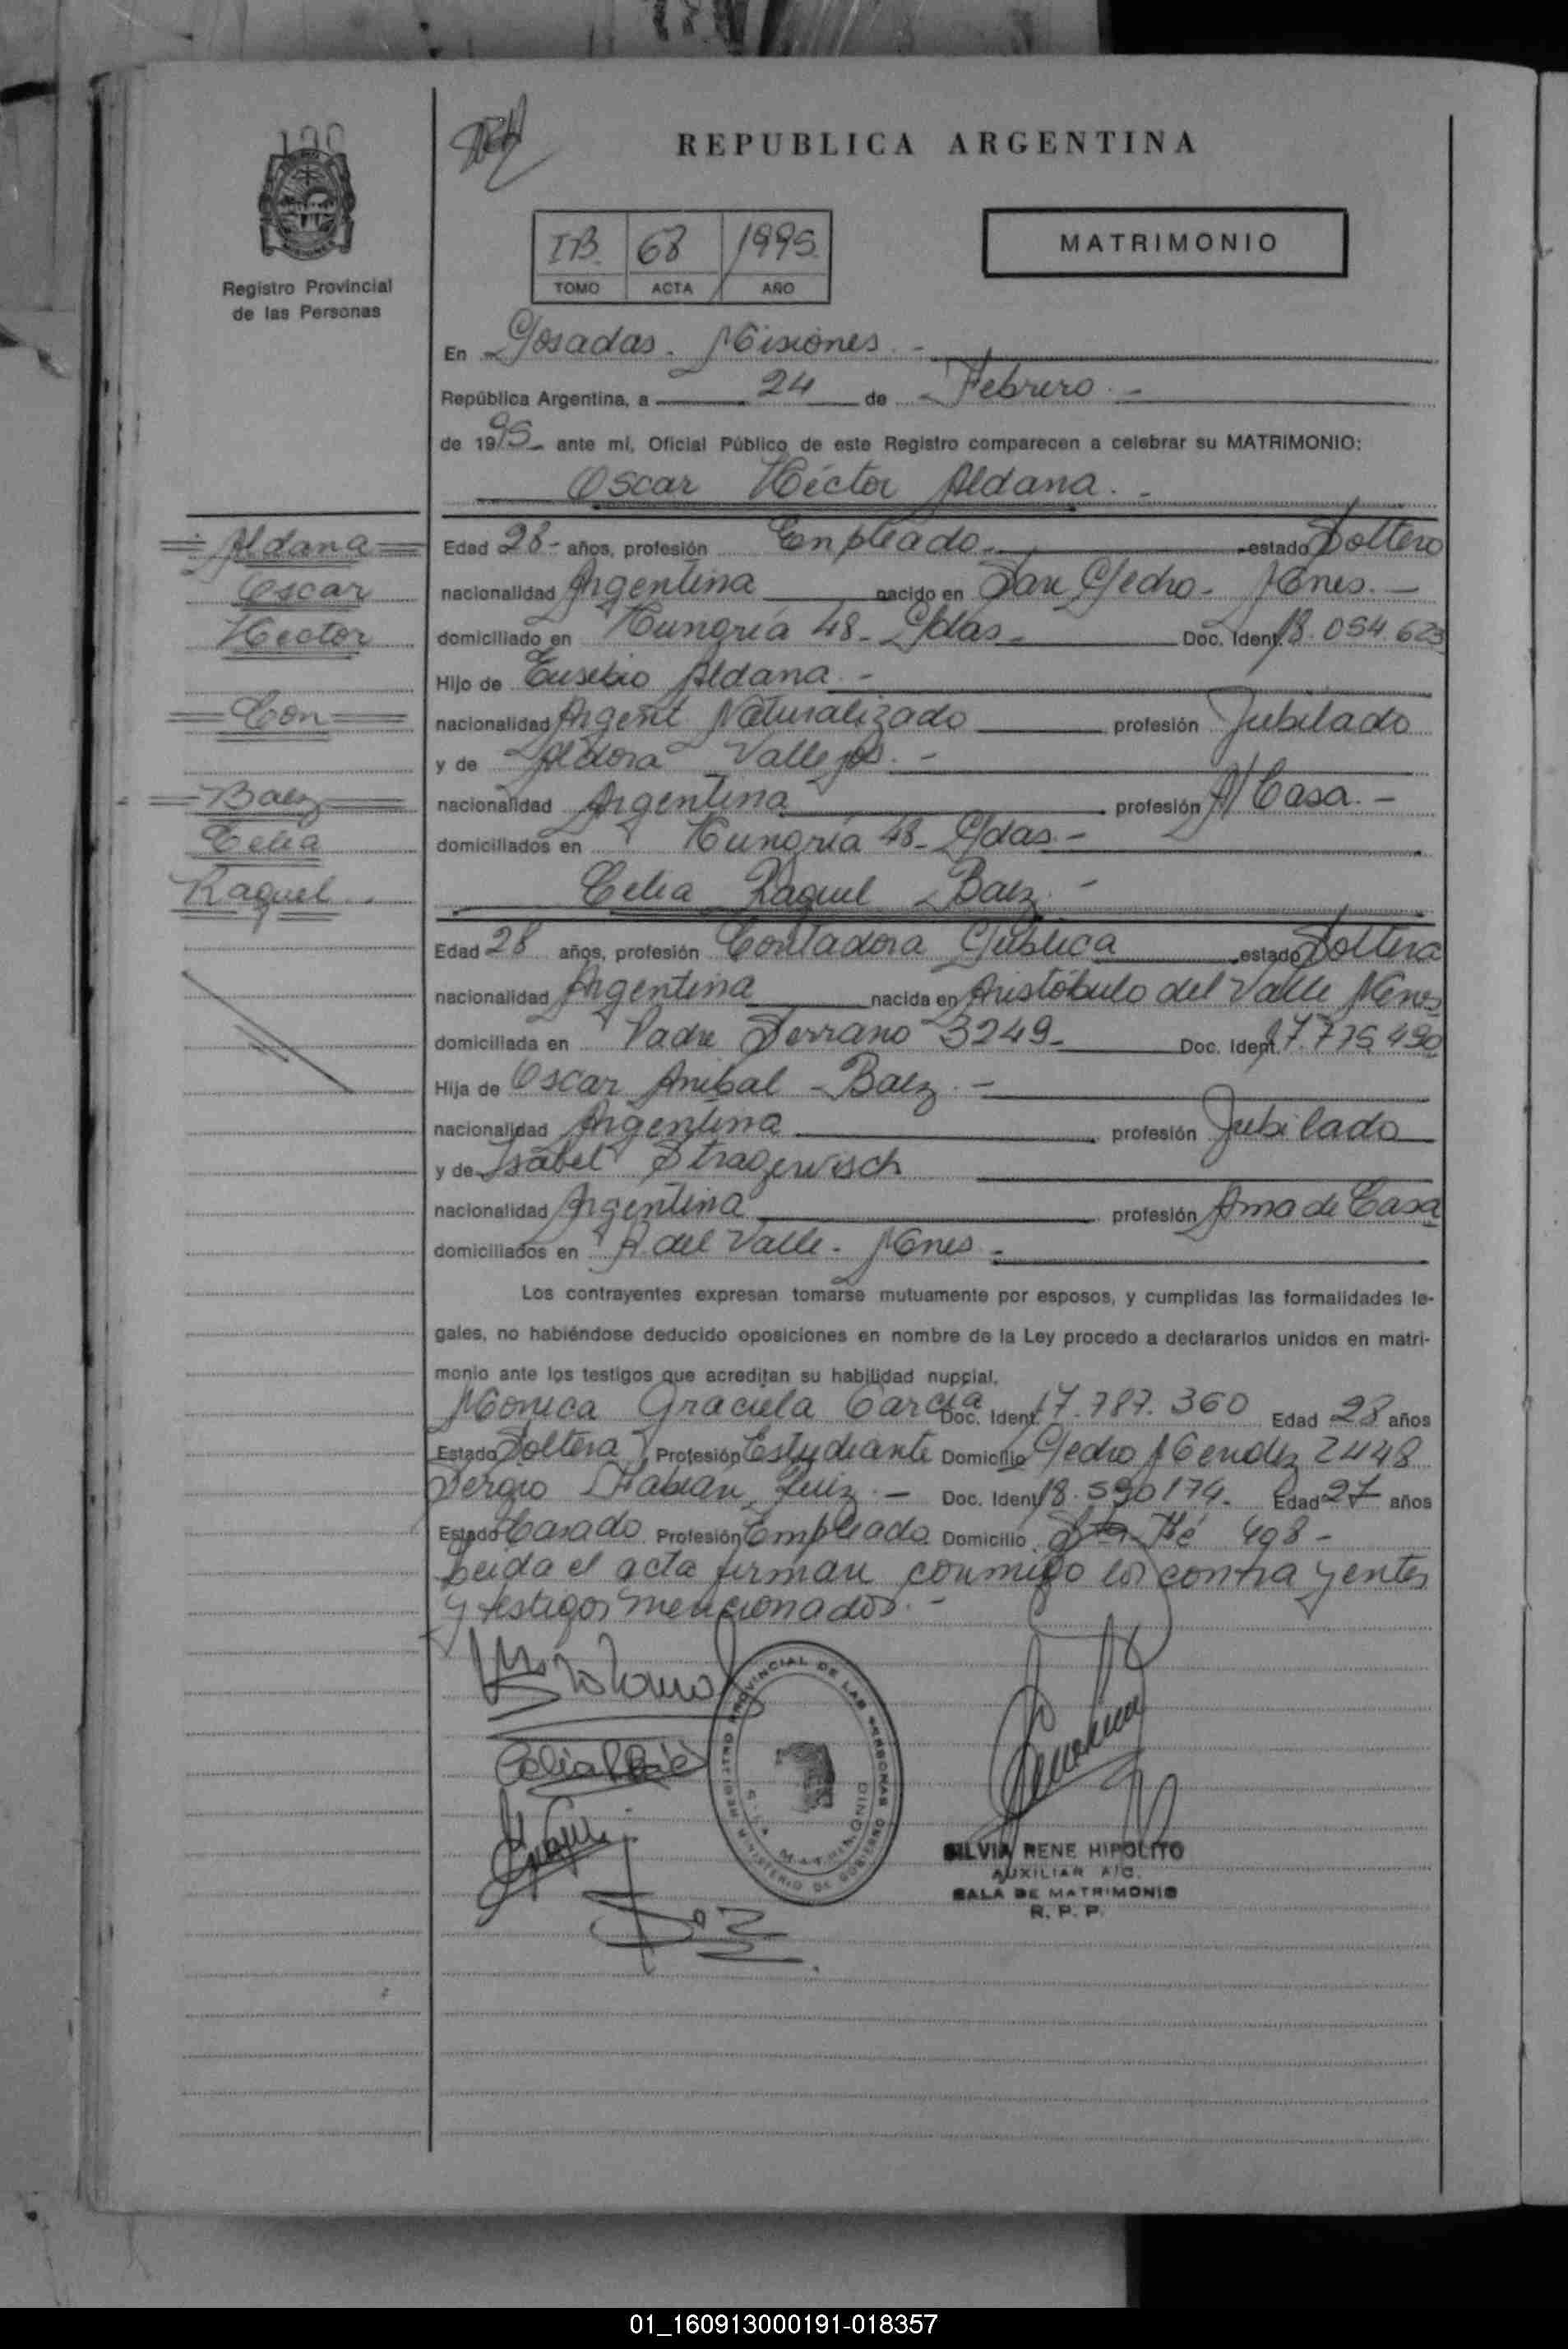 190
Registro Provincial
de las Personas
REPUBLICA ARGENTINA
IB. 68 1995
TOMO ACTA AÑO
MATRIMONIO
En Posadas. Misiones. -
República Argentina, a 24 de Febrero. -
de 1995 ante mí, Oficial Público de este Registro comparecen a celebrar su MATRIMONIO:
Oscar Héctor Aldana. -
Aldana
Oscar
Hector
Con
Baez
Celia
Raquel.
Edad 28- años, profesión Enpleado. estado Soltero
nacionalidad Argentina nacido en San Pedro - Mnes. -
domiciliado en Hungría 48- Pdas. Doc. Ident. 18.054.623
Hijo de Eusebio Aldana. -
nacionalidad Argent Naturalizado profesión Jubilado
y de Vallejos. -
nacionalidad Argentina profesión A/ Casa. -
domiciliados en Hungría 48- Pdas. -
Celia Raquel Baez. -
Edad 28 años, profesión Contadora Pública estado Soltera
nacionalidad Argentina nacida en Aristóbulo del Valle Mnes
domiciliada en Padre Serrano 3249- Doc. Ident. 17.775.490
Hija de Oscar Anibal Baez. -
nacionalidad Argentina profesión Jubilado
y de Isabel
nacionalidad Argentina profesión Ama de Casa
domiciliados en A. del Valle - Mnes -
Los contrayentes expresan tomarse mutuamente por esposos, y cumplidas las formalidades le-
gales, no habiéndose deducido oposiciones en nombre de la Ley procedo a declararlos unidos en matri-
monio ante los testigos que acreditan su habilidad nupcial.
Monica Graciela Garcia Doc. Ident. 17.787.360 Edad 28 años
Estado Soltera Profesión Estudiante Domicilio Pedro Mendez 2448
Sergio Fabián Ruiz. - Doc. Ident. 18.590174. Edad 27 años
Estado Casado Profesión Empleado Domicilio Sta Fé 498 -
Leida el acta firman conmigo los contrayentes
y testigos mencionados. -
REGISTRO PROVINCIAL DE LAS PERSONAS
MINISTERIO DE GOBIERNO
SALA MATRIMONIO
SILVIA RENE HIPOLITO
AUXILIAR A/C.
SALA DE MATRIMONIO
R. P. P.
01_160913000191-018357